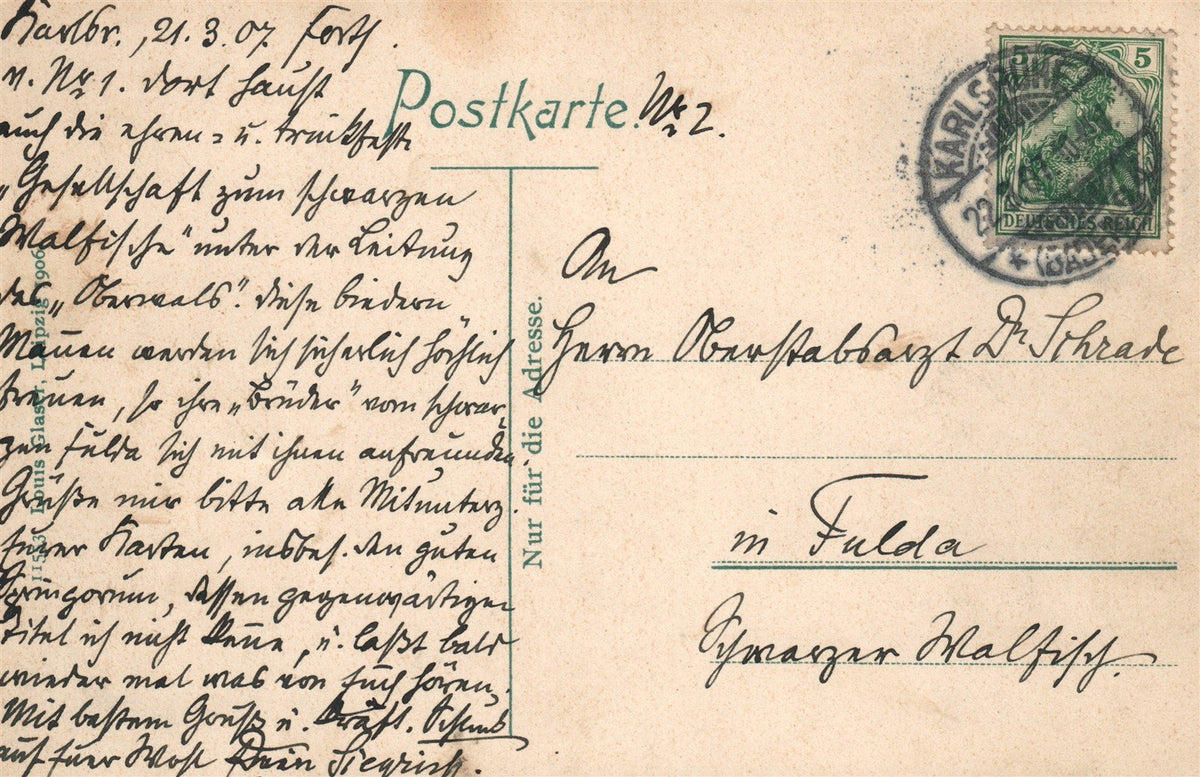 Karlsr., 21.3.07. Forts.
v. No 1. Dort haust
auch die ehren- u. trinkfeste
„Gesellschaft zum schwarzen
Walfische" unter der Leitung
des „Oberwals". Diese biedern
Mannen werden sich sicherlich höchlich
freuen, so ihre „Brüder" vom schwar-
zen Fulda sich mit ihnen anfreunden.
Grüße mir bitte alle Mitunterz.
Eurer Karten, insbes. den guten
Springorum, dessen gegenwärtigen
Titel ich nicht kenne, u. laßt bald
wieder mal was von Euch hören.
Mit bestem Gruß u. kräft. Schluck
auf Euer Wohl Dein
Postkarte. No 2.
5 5
DEUTSCHES REICH
KARLSRUHE
(BADEN)
An
Herrn Oberstabsarzt Dr Schrade
in Fulda
Schwarzer Walfisch.
Nur für die Adresse.
Louis Glaser, Leipzig 1906